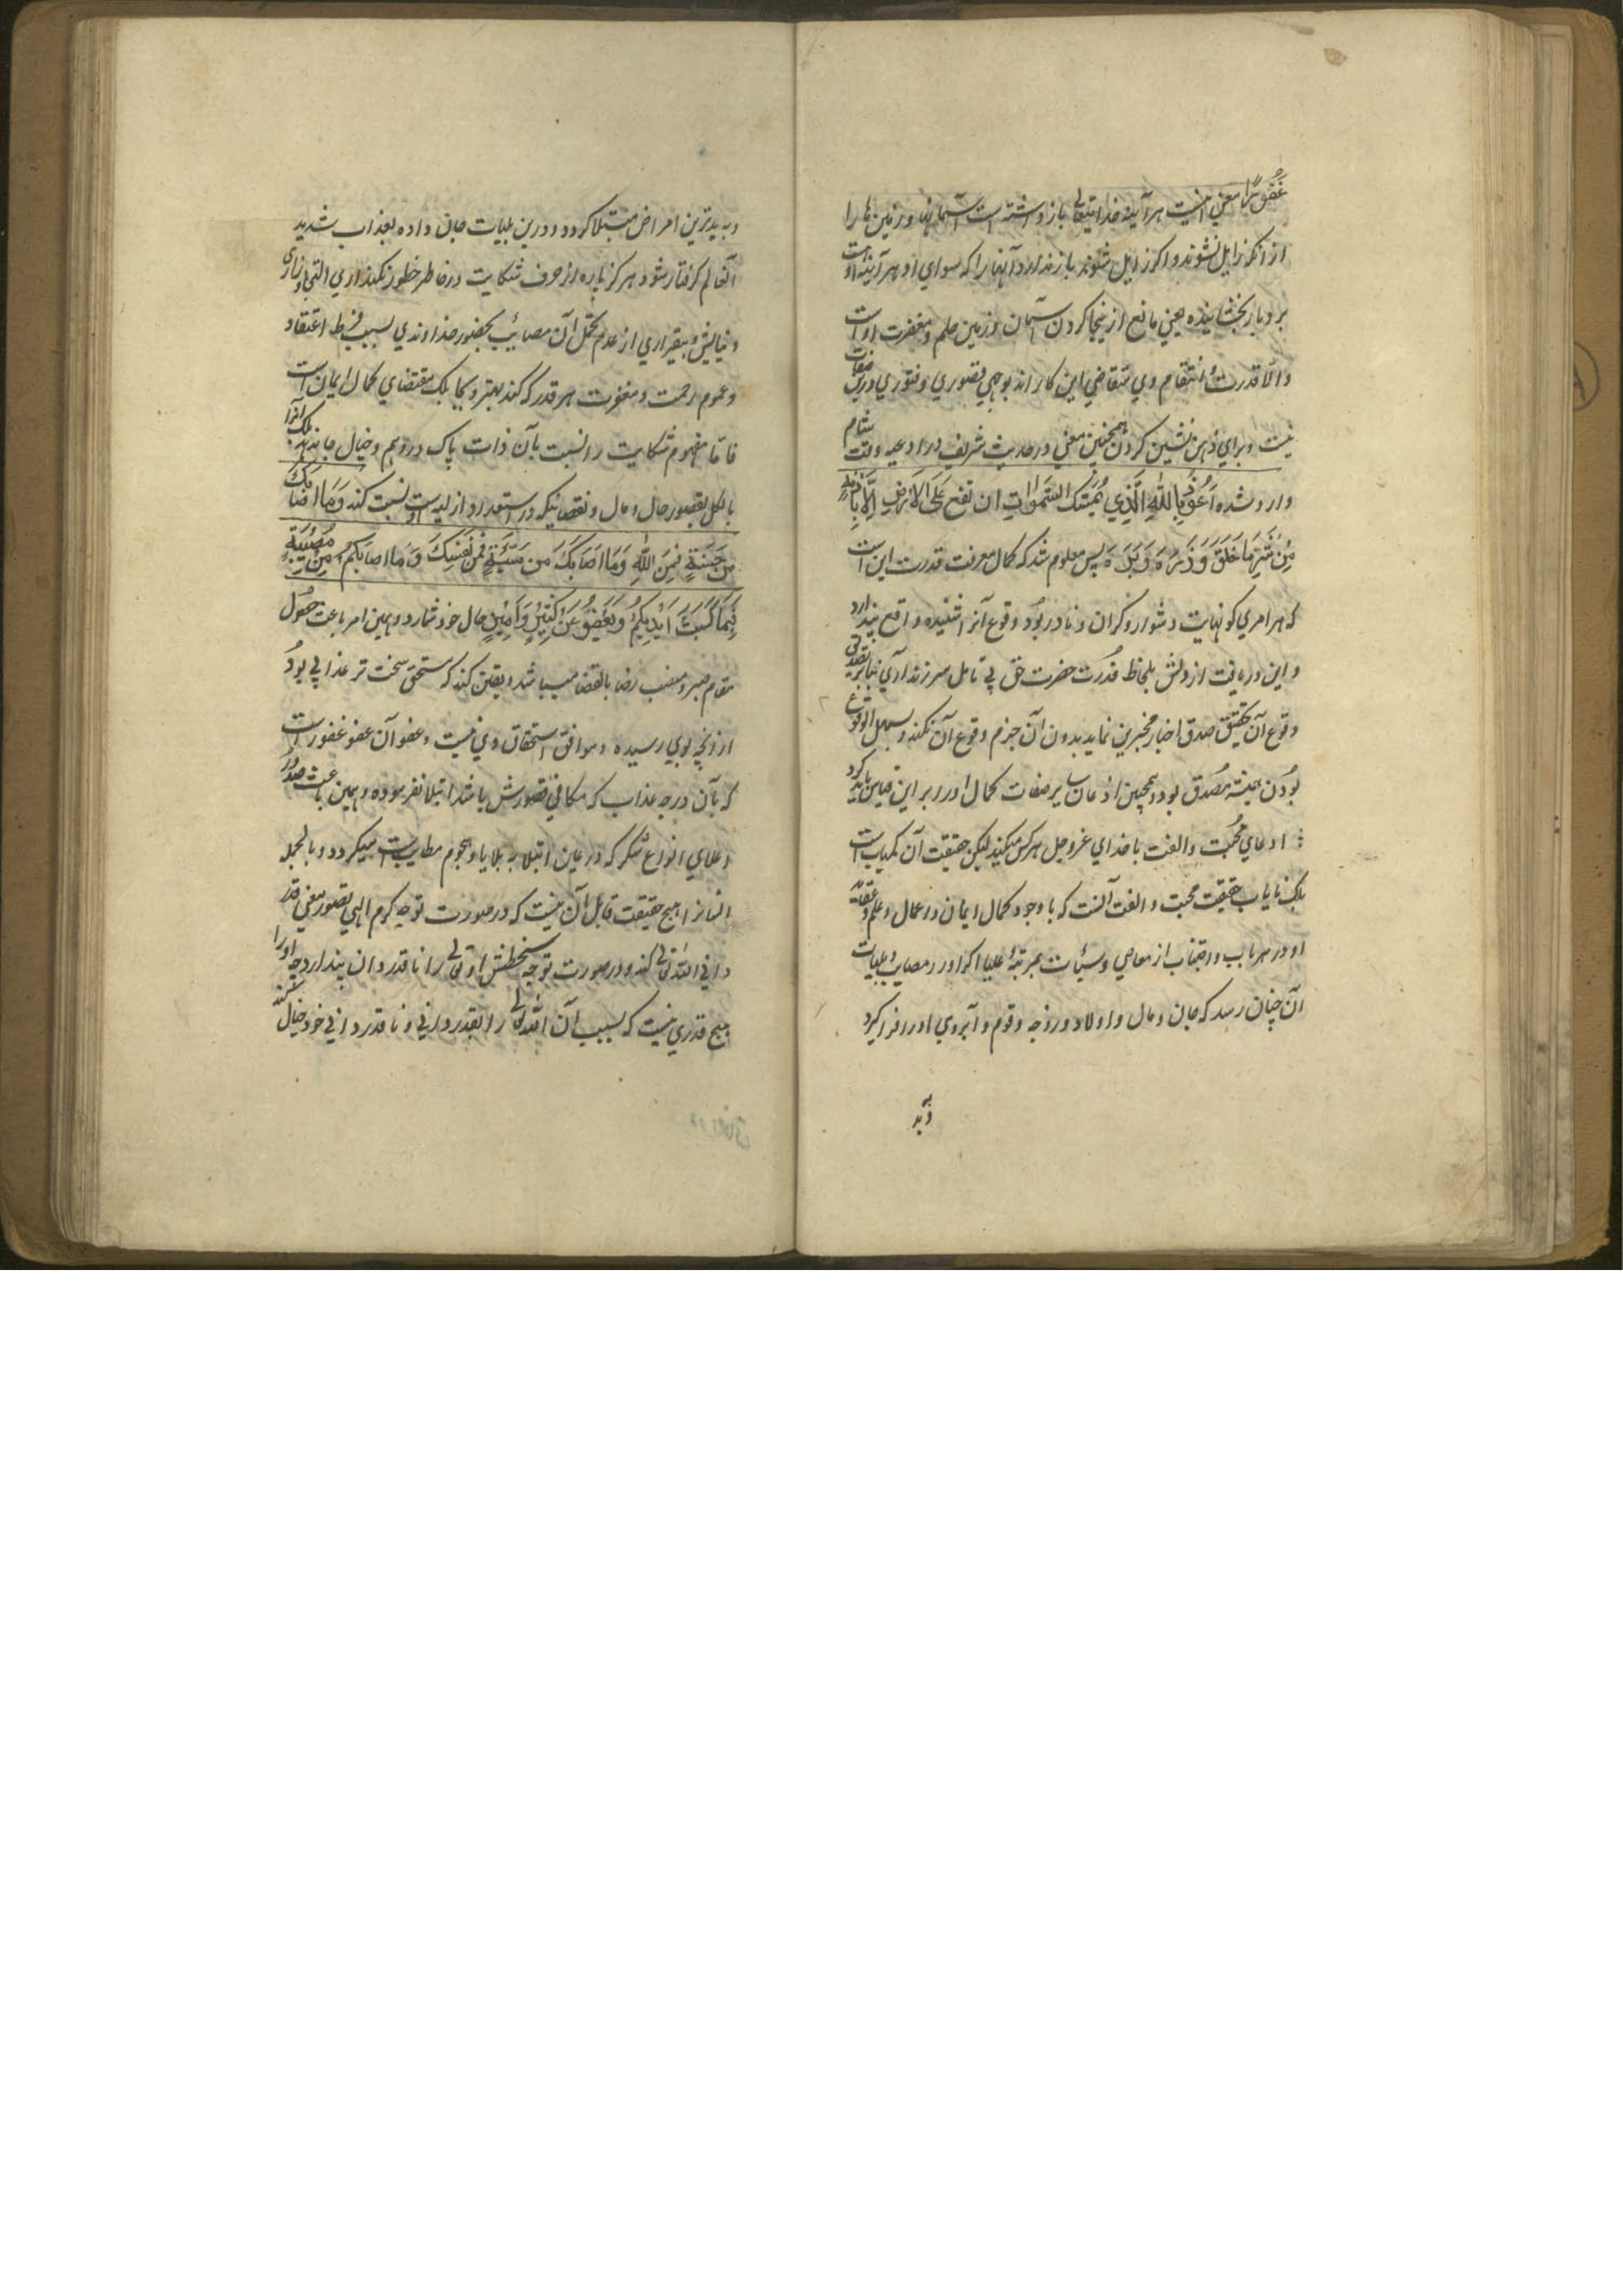 غَفُورًا معني اینست هر آینه خدا یتعالی باز داشته است آسمانها و زمین ها را
از آنکه زایل نشوند و اکر زایل شوند باز ندارد آنها را که سواي او هر آینه او است
بردبار بخشاینده یعني مانع از بیجا کردن آسمان و زمین حلم و مغفرت او است
والّا قدرت و انتقام وي متقاضي این کار اند بوجهي قصوري و فتوري درین صفات
نیست و براي ذهن نشین کردن همچنین معني در حدیث شریف در ادعیه وقت شام
وارد شده اَعُوْذُ بِاللهِ الَّذِي یُمْسِكُ السَّمٰوَاتِ ان تقع عَلَی الاَرضِ اِلَّا بِاِذنِهٖ
مِنْ شَرِّ مَا خَلَقَ وَذَرَءَ وَبَرَءَ پس معلوم شد که کمال معرفت قدرت این است
که هر امري کو نهایت دشوار و کران و نادر بُود وقوع آنرا شنیده واقع پندارد
و این دریافت از دلش بلحاظ قدُرت حضرت حق بي تامل سر زند آري بنابر تصدیق
وقوع آن تحقیق صدق اخبار مخبرین نماید بدون آن جزم وقوع آن نکند و سهل الوقوع
بُودن همیشه مُصدق بود و همچنین اذعان سایر صفات کمال او را بر این قیاس باید کرد
؞ ادعاي محُبت و الفت با خداي عزوجل هر کس میکند لیکن حقیقت آن کمیاب است
بلکه نایاب حقیقت محبت و الفت آنست که با وجود کمال ایمان در اعمال و علم و عقاید
او در هر باب و اجتناب از معاصي و سیُٔات بمرتبهٔ علیا اکر او را مصایب و بلیات
آن چنان رسد که جان و مال و اولاد و زوجه و قوم و آبروي او را فرا کیرد
و به بد
و به بد ترین امراض مبتلا کردد و درین بلیات جان داده بعذاب شدید
آنعالم کرفتار شود هر کز پاره از حرف شکایت در خاطر خطور نکند آري التجا و زاري
و نیایش و بیقراري از عدم تحمل آن مصائیب بحضور خداوندي بسبب فرط اعتقاد
و عموم رحمت و مغفرت هر قدر که کند بهتر و بجا بلکه مقتضاي کمال ایمان است
فاما مفهوم شکایت را نسبت بآن ذات پاک در وهم و خیال جا ندهد بلکه آنرا
بالکل بقصور حال و مال و نقصانیکه در استعداد ازلیه اوست نسبت کند وَمَا اَصَابَكَ
مِن حَسَنَةٍ فَمِنَ اللّٰهِ وَمَا اَصَابَكَ مِن سَيِّئَةٍ فَمِن نَفْسِكَ وَمَا اصابَكُمْ مِنْ مُصِيبَةٍ
فَبِمَا كَسَبَتْ اَيْدِيكُمْ وَيَعْفُو عَنْ كَثِيْرٍ حال خود شمارد و همین امر باعث حصُول
مقام صبر و منصب رضا بالقضا میباشد و یقین کند که مستحق سخت تر عذابي بودُ
از آنچه بوي رسیده و موافق استحقاق وي نیست و عفو آن عفو غفور است
که بآن درجه عذاب که مکافي قصورش باشد ابتلا نفرموده و همین باعث صدُور
اعلاي انواع شکر که در عین ابتلا به بلایا و هجوم مصایب است میکردد و بالجمله
انسانرا هیچ حقیقت قابل آن نیست که در صورت توجه کرم الهي تصور معني قدر
داني الله تعالی کند و در صورت توجه سخطش او تعالی را ناقدردان پندارد چه او را
هیچ قدري نیست که بسبب آن الله تعالی را بقدرداني و ناقدرداني خود خیال کند